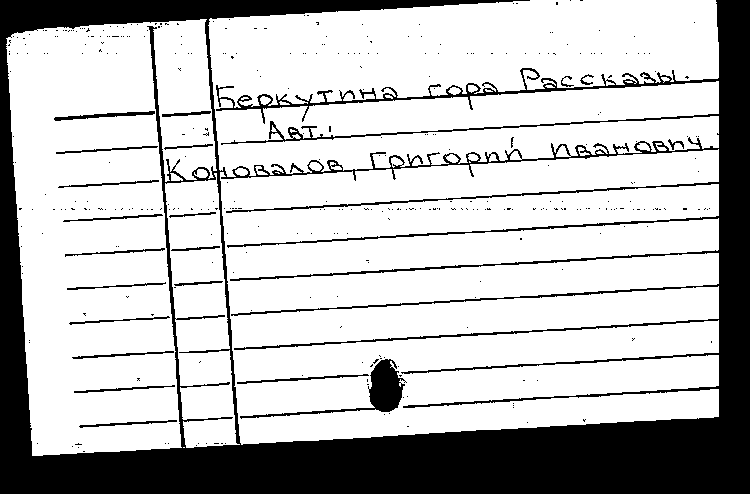 Беркутина гора Рассказы.
Авт.:
Коновалов, Григорий Иванович.